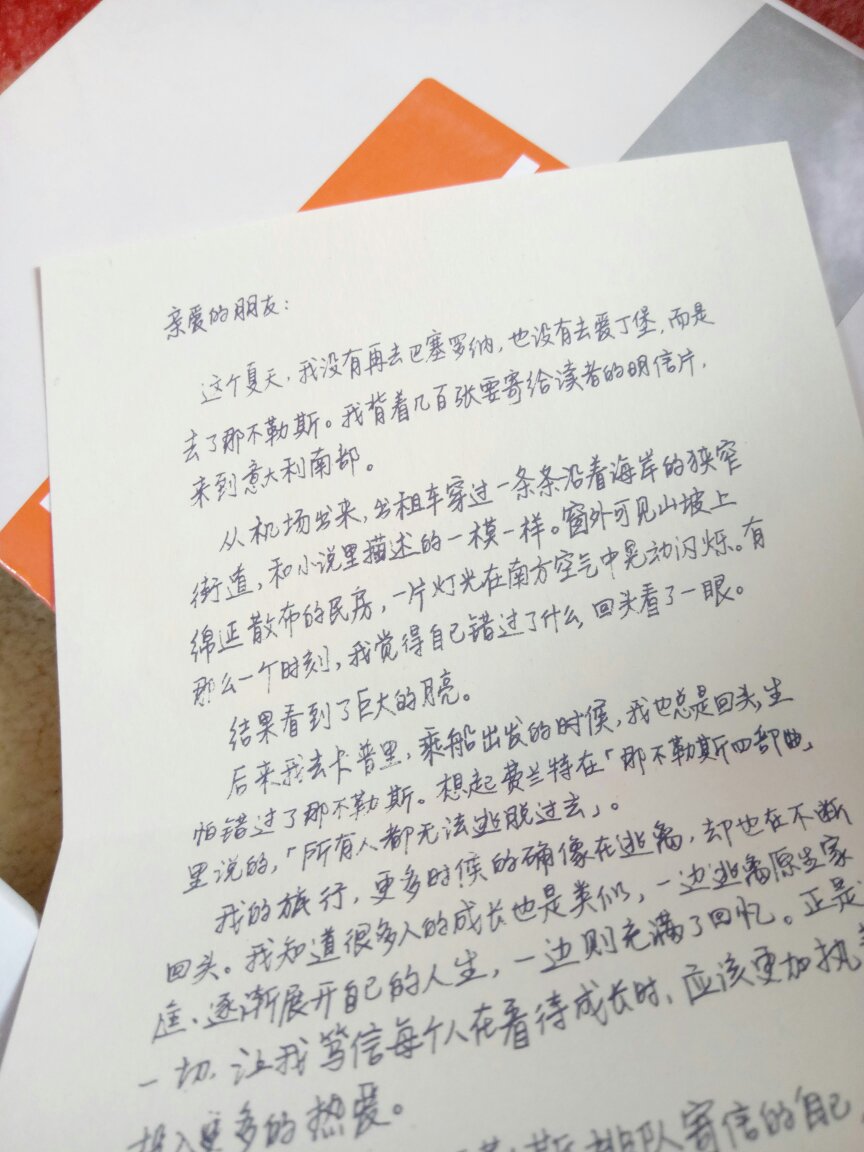 亲爱的朋友：
这个夏天，我没有再去巴塞罗纳，也没有去爱丁堡，而是
去了那不勒斯。我背着几百张要寄给读者的明信片，
来到意大利南部。
从机场出来，出租车穿过一条条沿着海岸的狭窄
街道，和小说里描述的一模一样。窗外可见山坡上
绵延散布的民房，一片灯光在南方空气中晃动闪烁。有
那么一个时刻，我觉得自己错过了什么，回头看了一眼。
结果看到了巨大的月亮。
后来我去卡普里，乘船出发的时候，我也总是回头，生
怕错过了那不勒斯。想起费兰特在「那不勒斯四部曲」
里说的，「所有人都无法逃脱过去」。
我的旅行，更多时候的确像在逃离，却也在不断
回头。我知道很多人的成长也是类似，一边逃离原生家
庭、逐渐展开自己的人生，一边则充满了回忆。正是
一切，让我笃信每个人在看待成长时，应该更加执
投入更多的热爱。
排队寄信的自己，